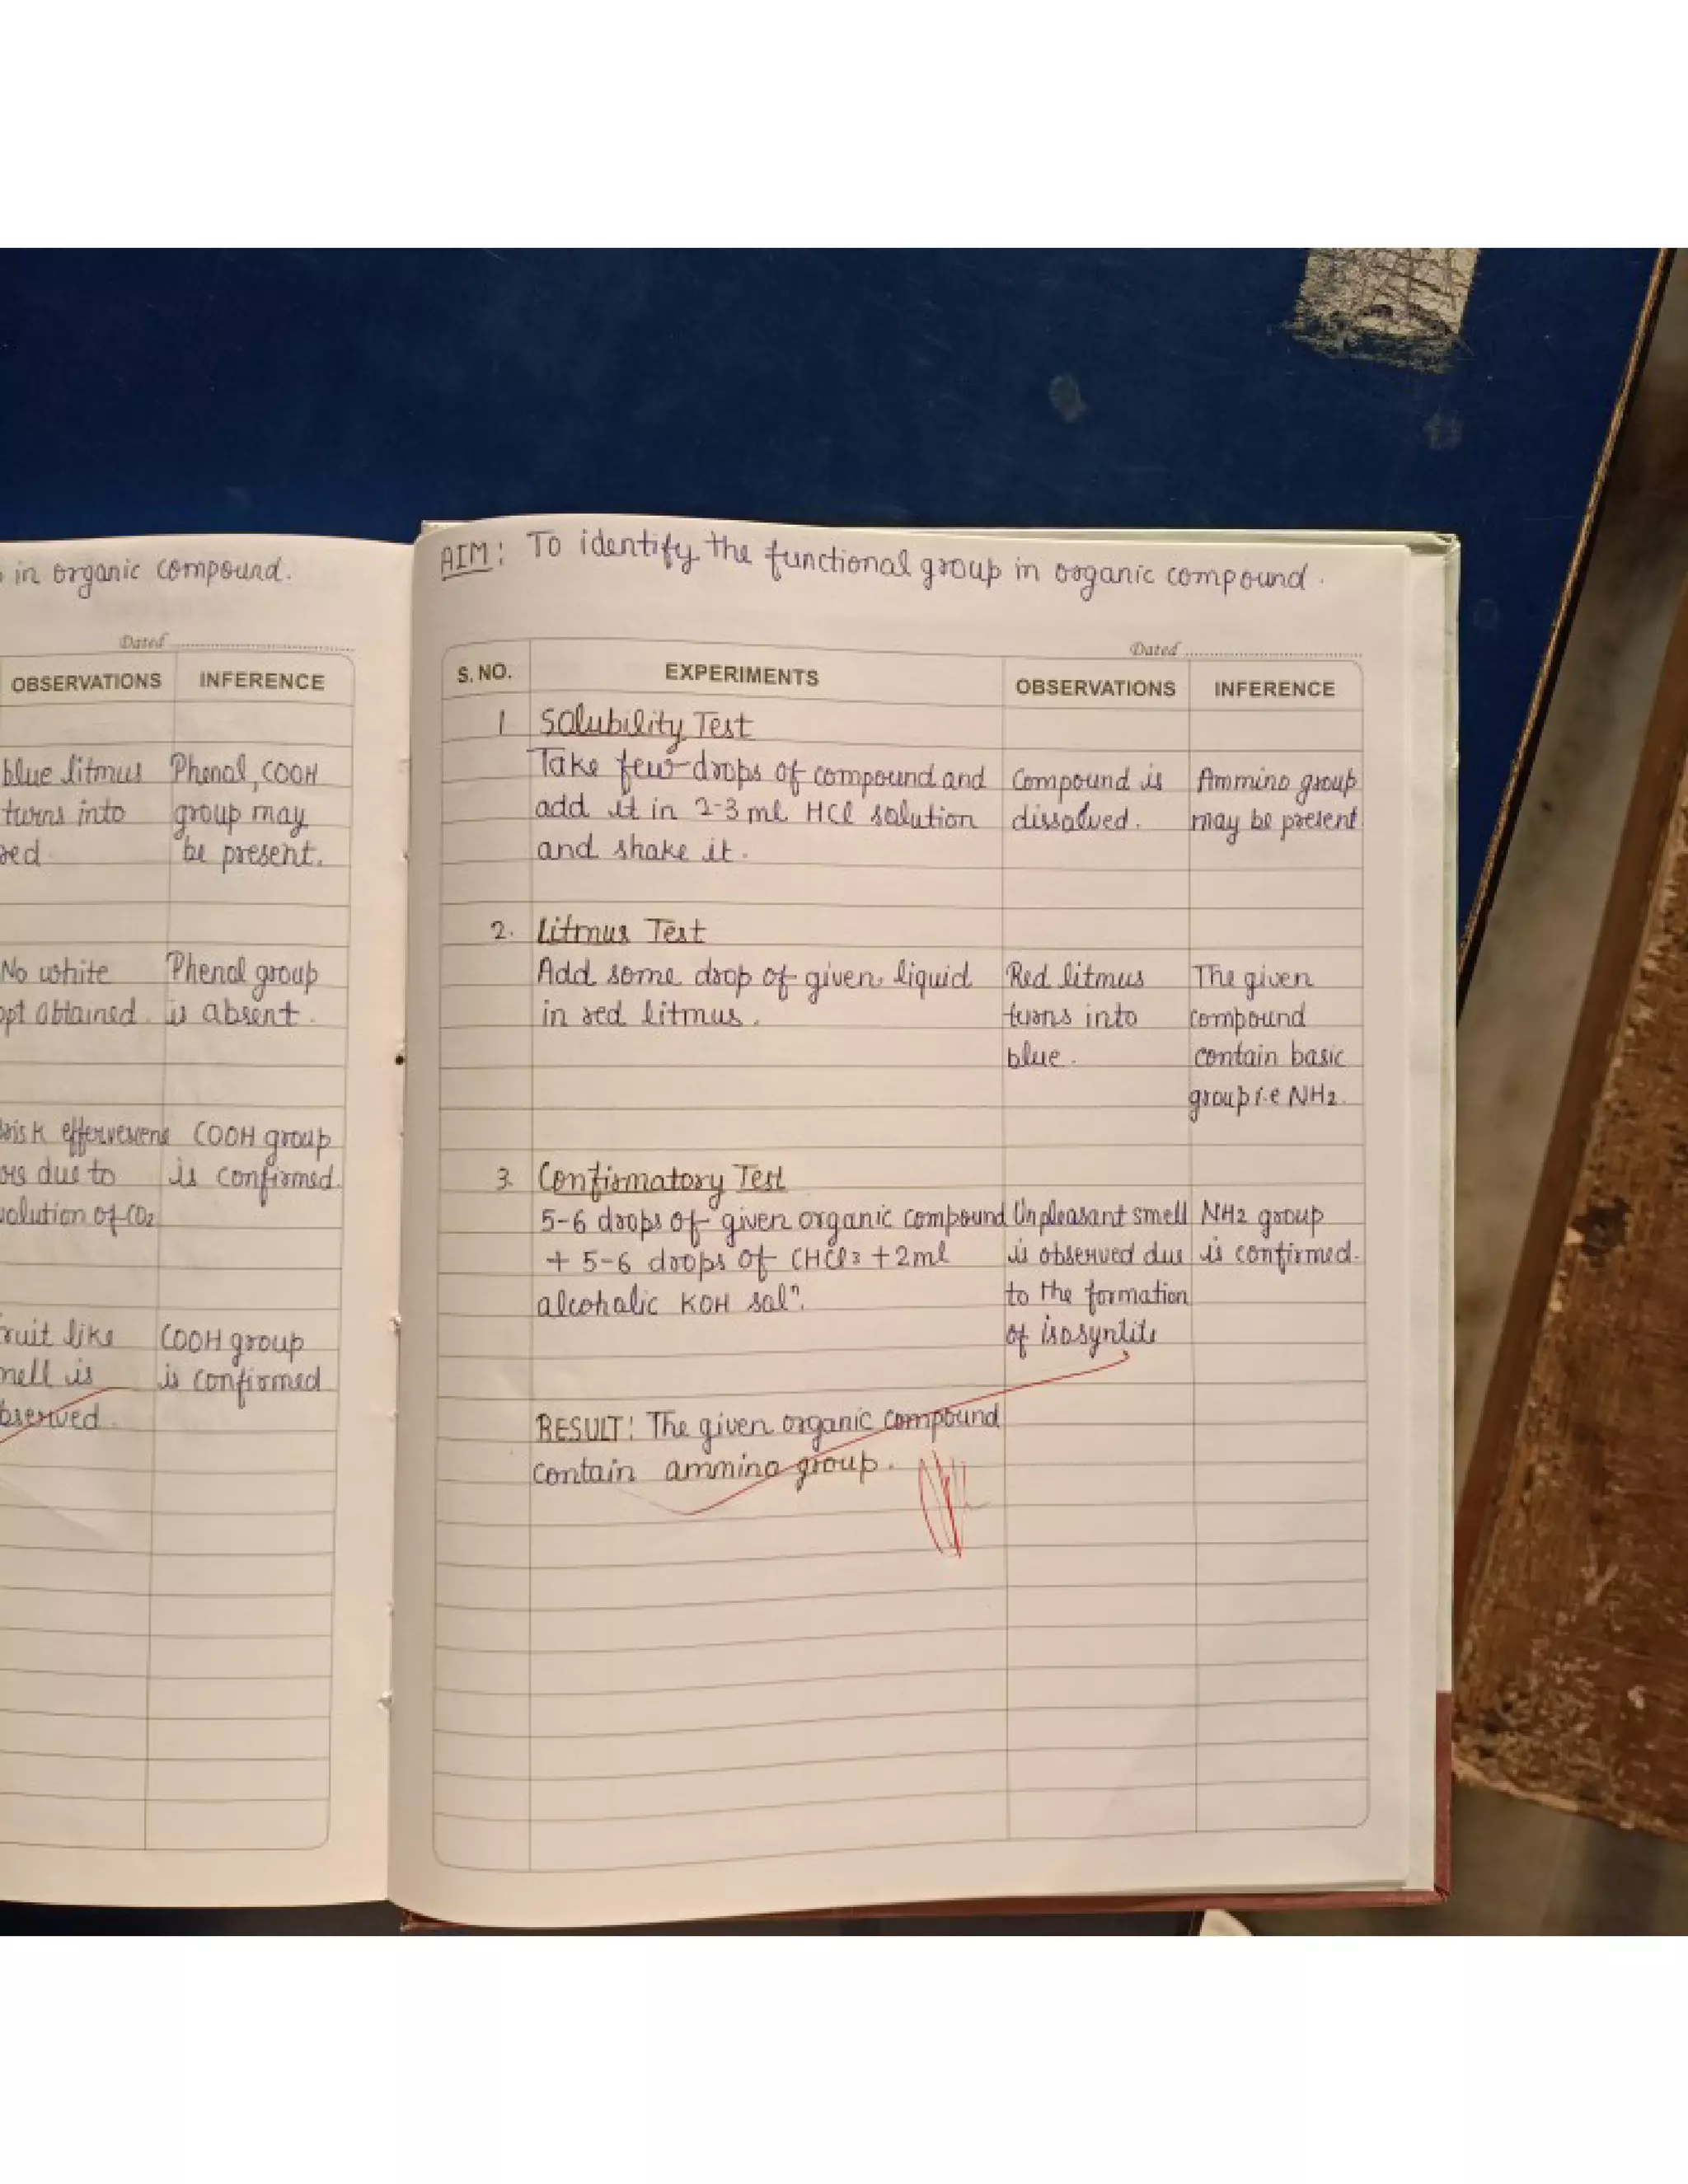 in organic compound.
Dated
OBSERVATIONS INFERENCE
blue litmus Phenol, COOH
turns into group may
red be present.
No white Phenol group
ppt obtained. is absent.
effervescens COOH group
due to is confirmed.
of CO2
like COOH group
is is confirmed
AIM: To identify the functional group in organic compound.
Dated
S. NO. EXPERIMENTS OBSERVATIONS INFERENCE
1 Solubility Test
Take few drops of compound and Compound is Ammino group
add it in 2-3 ml HCl solution dissolved. may be present
and shake it.
2. Litmus Test
Add some drop of given liquid Red litmus The given
in red litmus. turns into compound
blue. contain basic
group i.e NH2.
3. Confirmatory Test
5-6 drops of given organic compound Unpleasant smell NH2 group
+ 5-6 drops of CHCl3 + 2ml is observed due is confirmed.
alcoholic KOH solⁿ. to the formation
of isosyntile
RESULT: The given organic compound
contain ammino group.